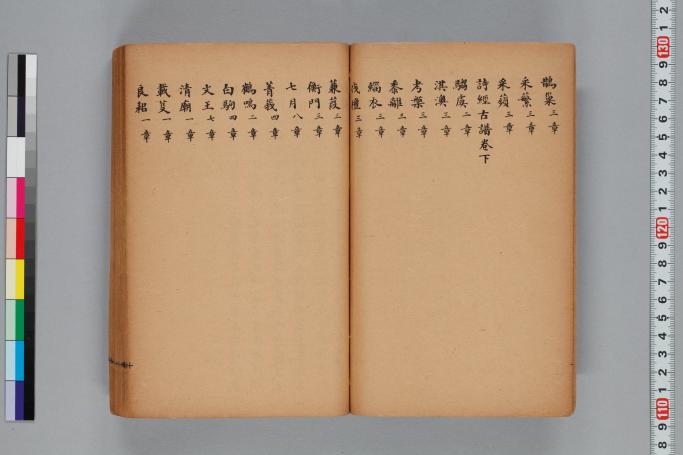 鵲巢三章
采蘩三章
采蘋三章
詩經古譜卷下
騶虞二章
淇澳三章
考槃三章
黍離三章
緇衣三章
伐檀三章
蒹葭三章
衡門三章
七月八章
菁莪四章
鶴鳴二章
白駒四章
文王七章
清廟一章
載芟一章
良耜一章
130
120
110